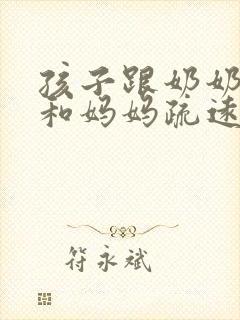 孩子跟奶奶
和妈妈疏远
符永斌